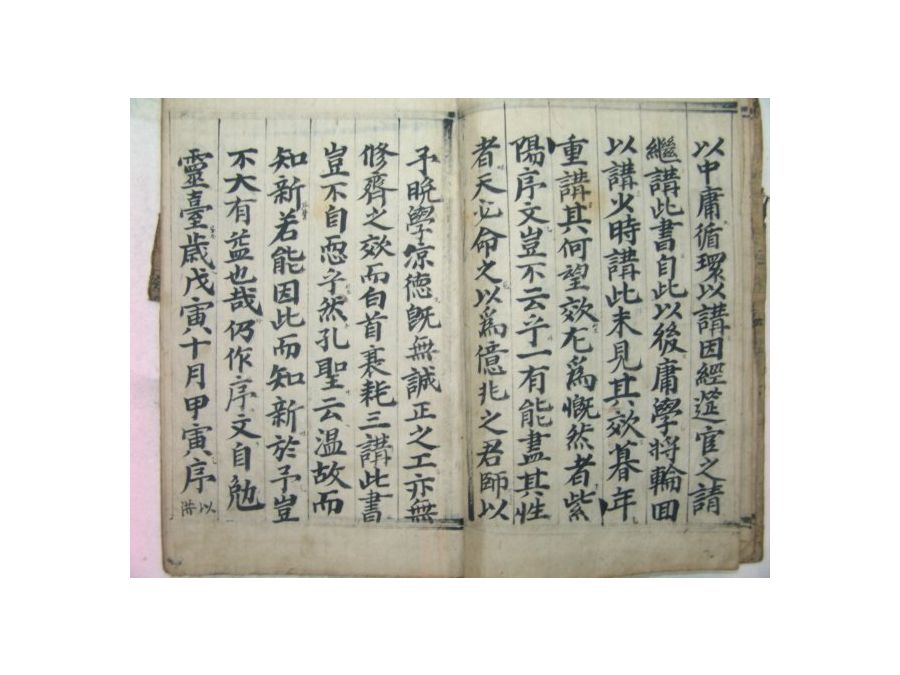 以中庸循環以講因經筵官之請
繼講此書自此以後庸學將輪囬
以講少時講此未見其效暮年
重講其何望效尤爲慨然者紫
陽序文豈不云乎一有能盡其性
者天必命之以爲億兆之君師以
予晩學凉德旣無誠正之工亦無
修齊之效而白首衰耗三講此書
豈不自恧乎然孔聖云溫故而
知新若能因此而知新於予豈
不大有益也哉仍作序文自勉
靈臺歲戊寅十月甲寅序